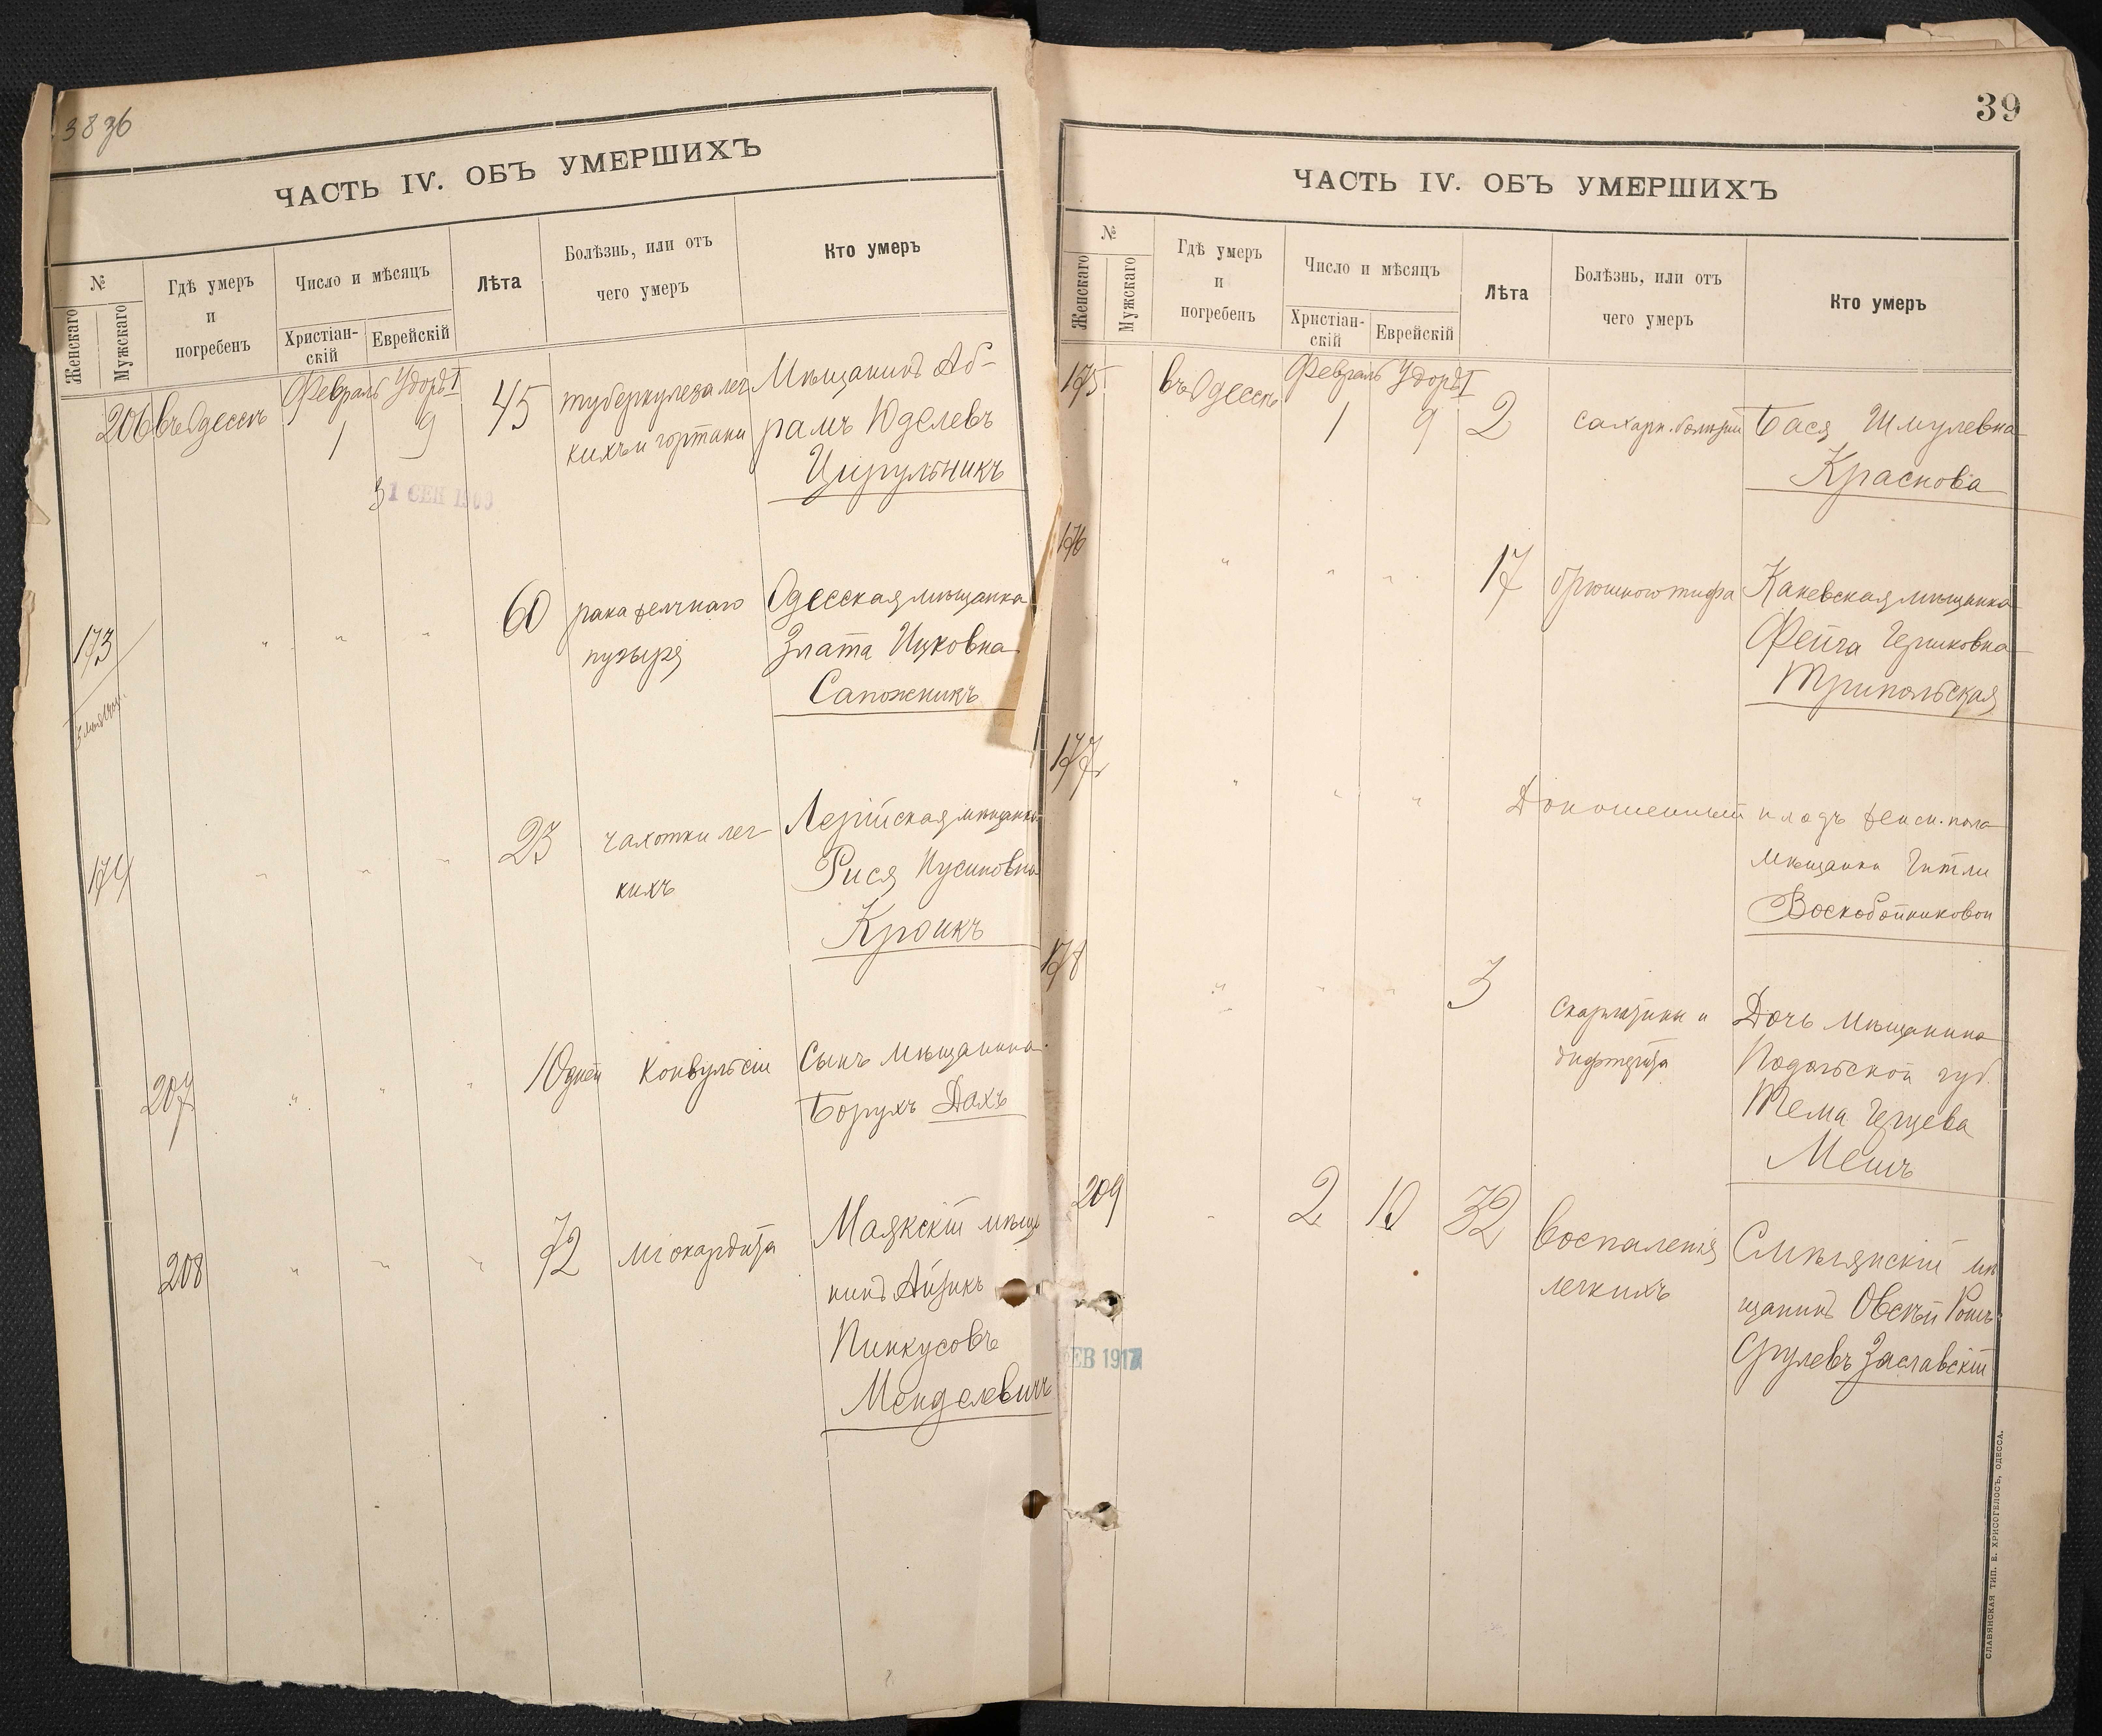 38 об
ЧАСТЬ IV. ОБЪ УМЕРШИХЪ
№
Женскаго
Мужскаго
Гдѣ умеръ
и
погребенъ
Число и мѣсяцъ
Христіан-
скій
Еврейскій
Лѣта
Болѣзнь, или отъ
чего умеръ
Кто умеръ
206 въ Одессѣ Февраль 1 Удоръ I 9 45 туберкулеза лег- Мѣщанинъ Аб-
кихъ и гортани рамъ Юделевъ
Цирульникъ
1 СЕН 1903
173 " " " 60 рака желчнаго Одесская мѣщанка
пузыря Злата Ицковна
Сапожникъ
174 " " " 23 чахотки лег- мѣщанка
кихъ Рися Нусиновна
Кроикъ
207 " " " 10 дней Конвульсіи Сынъ мѣщанина
Борухъ Дахъ
208 " " " 72 міокардита Маякскій мѣща
нинъ Айзикъ
Пинкусовъ
Менделевичъ
39
ЧАСТЬ IV. ОБЪ УМЕРШИХЪ
№
Женскаго
Мужскаго
Гдѣ умеръ
и
погребенъ
Число и мѣсяцъ
Христіан-
скій
Еврейскій
Лѣта
Болѣзнь, или отъ
чего умеръ
Кто умеръ
175 въ Одессѣ Февраль 1 Удоръ I 9 2 сахарн. болѣзни Бася Шмулевна
Краснова
176 " " " 17 брюшного тифа Каневская мѣщанка
Фейга Гершковна
Трипольская
177 " " " Доношенный плодъ женск. пола
мѣщанки Гитли
Воскобойниковой
178 " " " 3 Скарлатины и Дочь мѣщанина
дифтерита Подольской губ.
Тема Герцева
Мешъ
209 " 2 10 32 Воспаленія Смѣлянскій мѣ
легкихъ щанинъ Овсѣй
Срулевъ Заславскій
ЕВ 1917
СЛАВЯНСКАЯ ТИП. Е. ХРИСОГЕЛОСЪ, ОДЕССА.